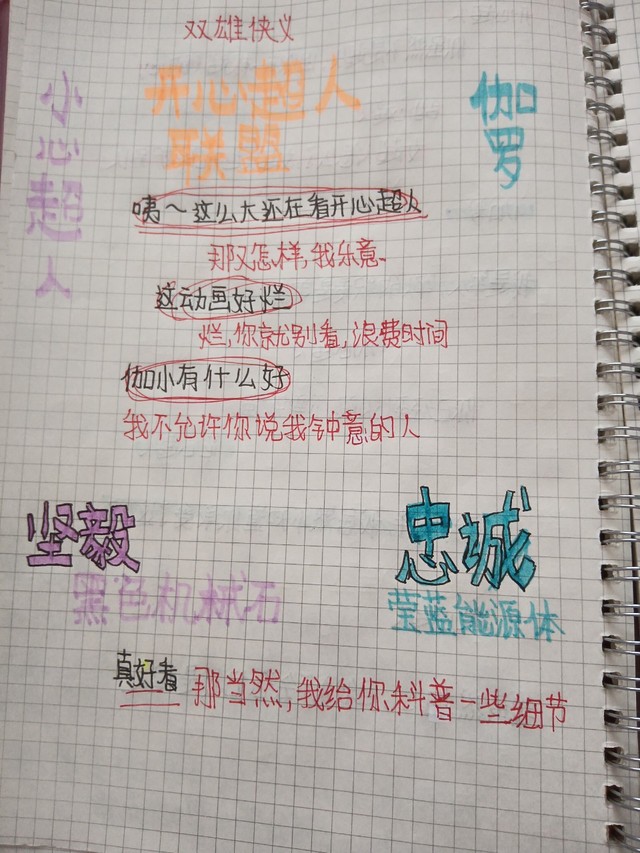 双雄侠义
开心超人
联盟
小心超人
伽罗
咦~这么大还在看开心超人
那又怎样,我乐意.
这动画好烂
烂,你就别看,浪费时间
伽小有什么好
我不允许你说我钟意的人
坚毅
忠诚
黑色机械石
莹蓝能源体
真好看
那当然,我给你科普一些细节